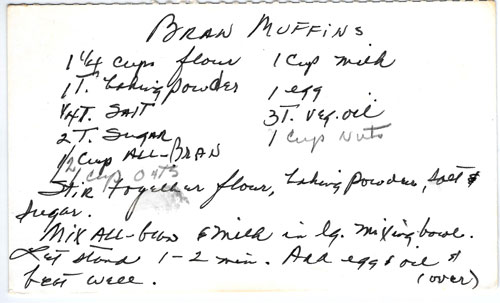 BRAN MUFFINS
1 1/4 cups flour
1 T. baking powder
1/4 T. SALT
2 T. Sugar
1/2 Cup ALL-BRAN
1 cup Oats
1 Cup milk
1 egg
3 T. veg. oil
1 Cups Nuts
Stir together flour, baking powder, salt &
sugar.
Mix All-bran & milk in lg. mixing bowl.
Let stand 1-2 min. Add egg & oil &
beat well.
(over)